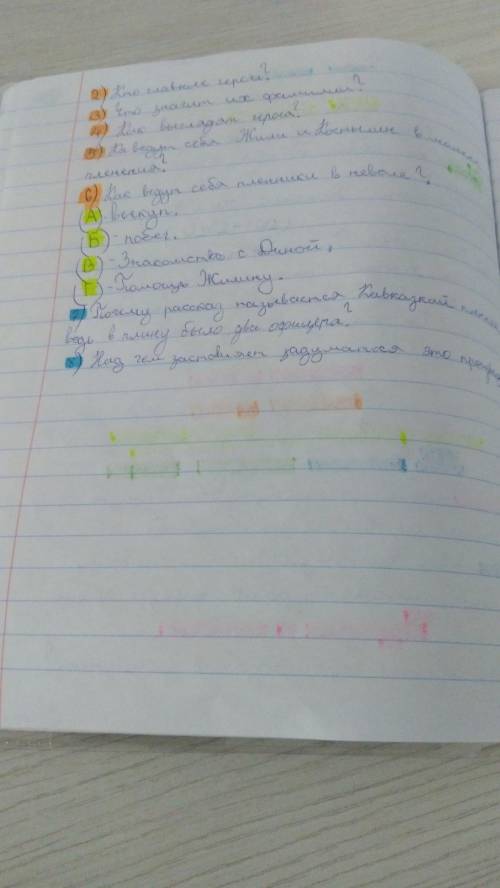 2) Кто главные герои?
3) Что значит их фамилии?
4) Как выглядят герои?
5) Как ведут себя Жилин и Костылин в момент
пленения?
6) Как ведут себя пленники в неволе?
А) - выкуп.
Б) - побег.
В) - Знакомство с Диной.
Г) - Помощь Жилину.
7) Почему рассказ называется Кавказкий
ведь в плину было два офицера?
8) Над чем заставляет задуматся это